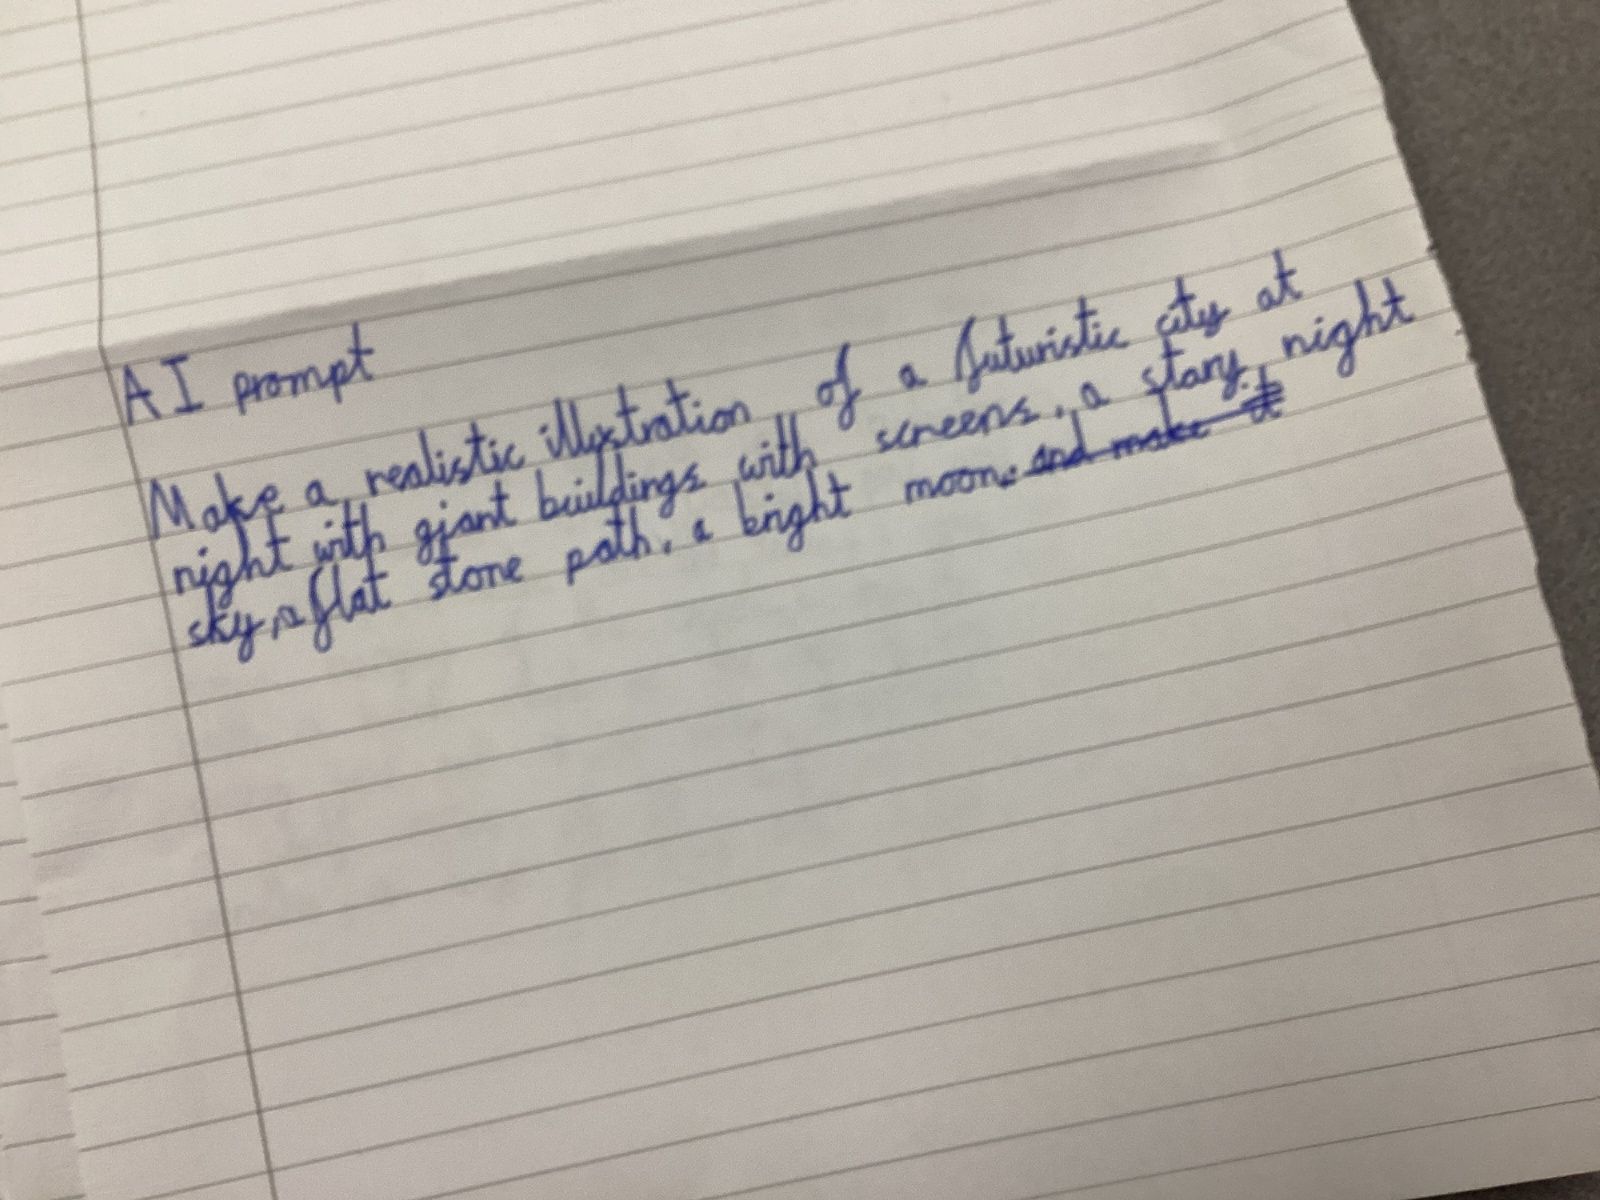 AI prompt
Make a realistic illustration of a futuristic city at
night with giant buildings with screens, a stary night
sky, a flat stone path, a bright moon. and make it